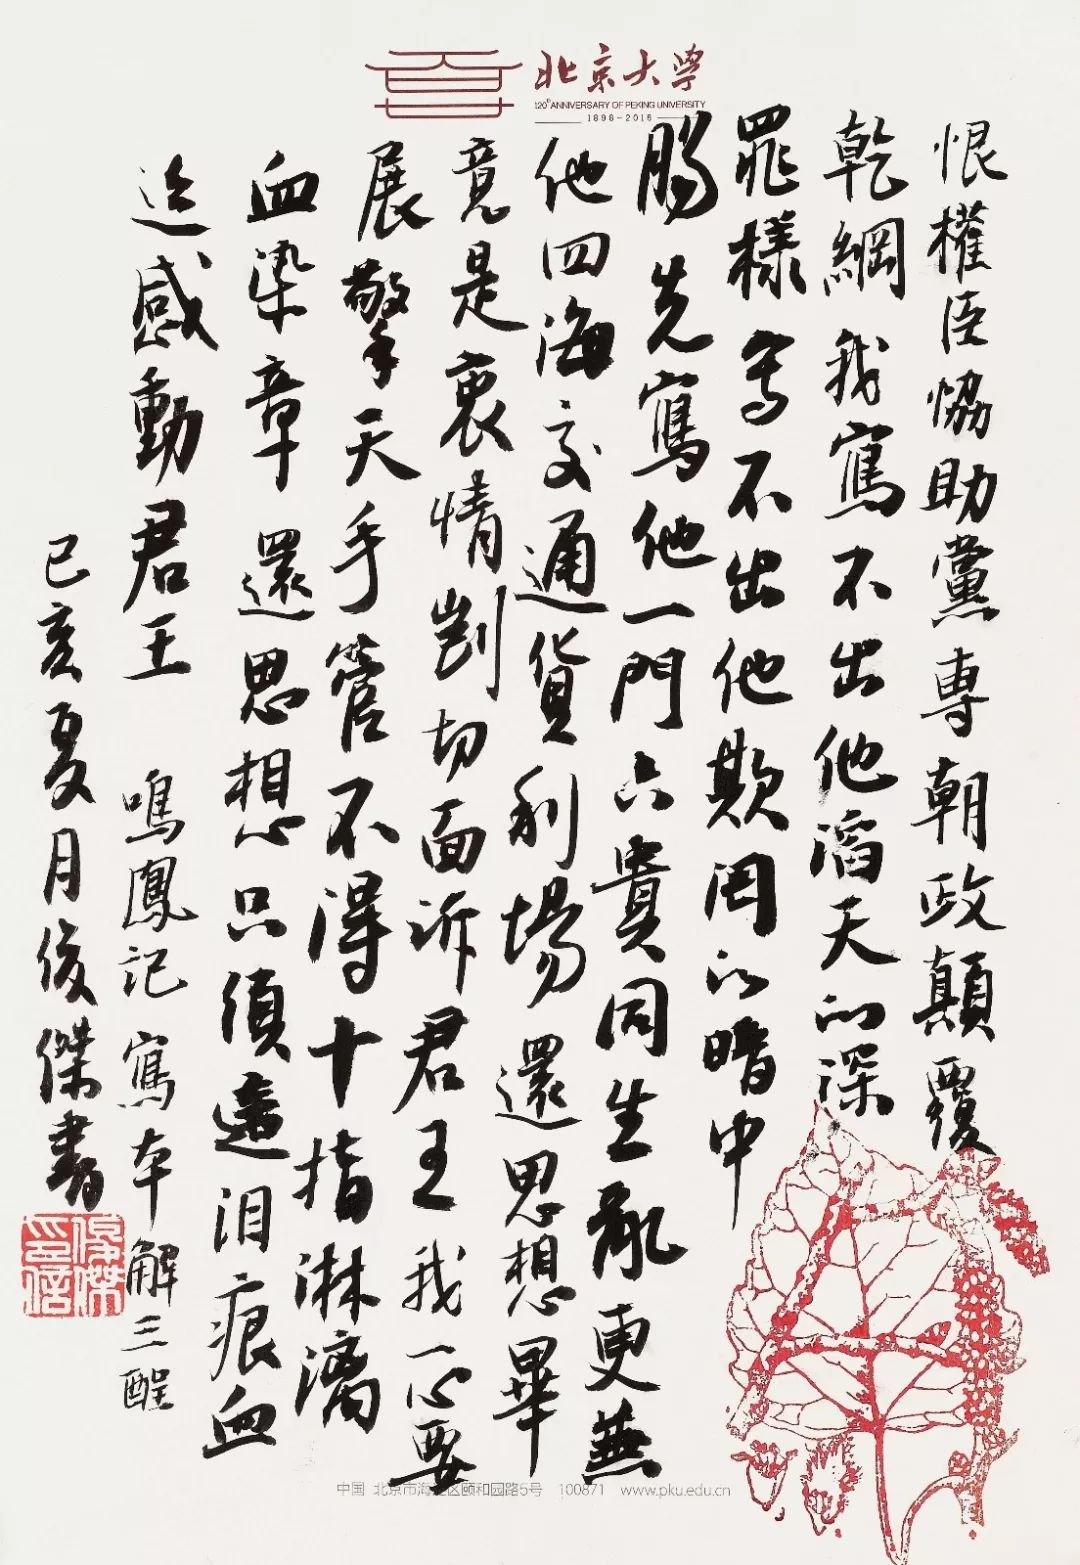 北京大學
120th ANNIVERSARY OF PEKING UNIVERSITY
1898-2018
恨權臣恊助黨専朝政顛覆
乾綱我寫不出他滔天的深
罪様寫不出他欺罔的暗中
腸先寫他一門六貴同生亂更兼
他四海交通貨利場還思想畢
竟是衷情剴切面訴君王我一心要
展擎天手管不得十指淋漓
血染章還思想只須這泪痕血
迹感動君王 鳴鳳記寫本解三酲
己亥夏月俊傑書
俊傑印信
中国 北京市海淀区颐和园路5号 100871 www.pku.edu.cn